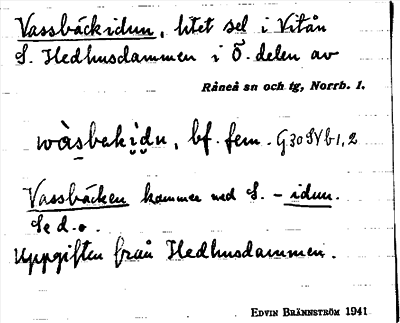 Vassbäckidun, litet sel i Vitån
S. Hedhusdammen i Ö. delen av
Råneå sn och tg, Norrb. l.
wàsbakidu, bf. fem. G30SVb1,2
Vassbäcken kommer ned S. - idun.
Se d.o.
Uppgiften från Hedhusdammen.
EDVIN BRÄNNSTRÖM 1941